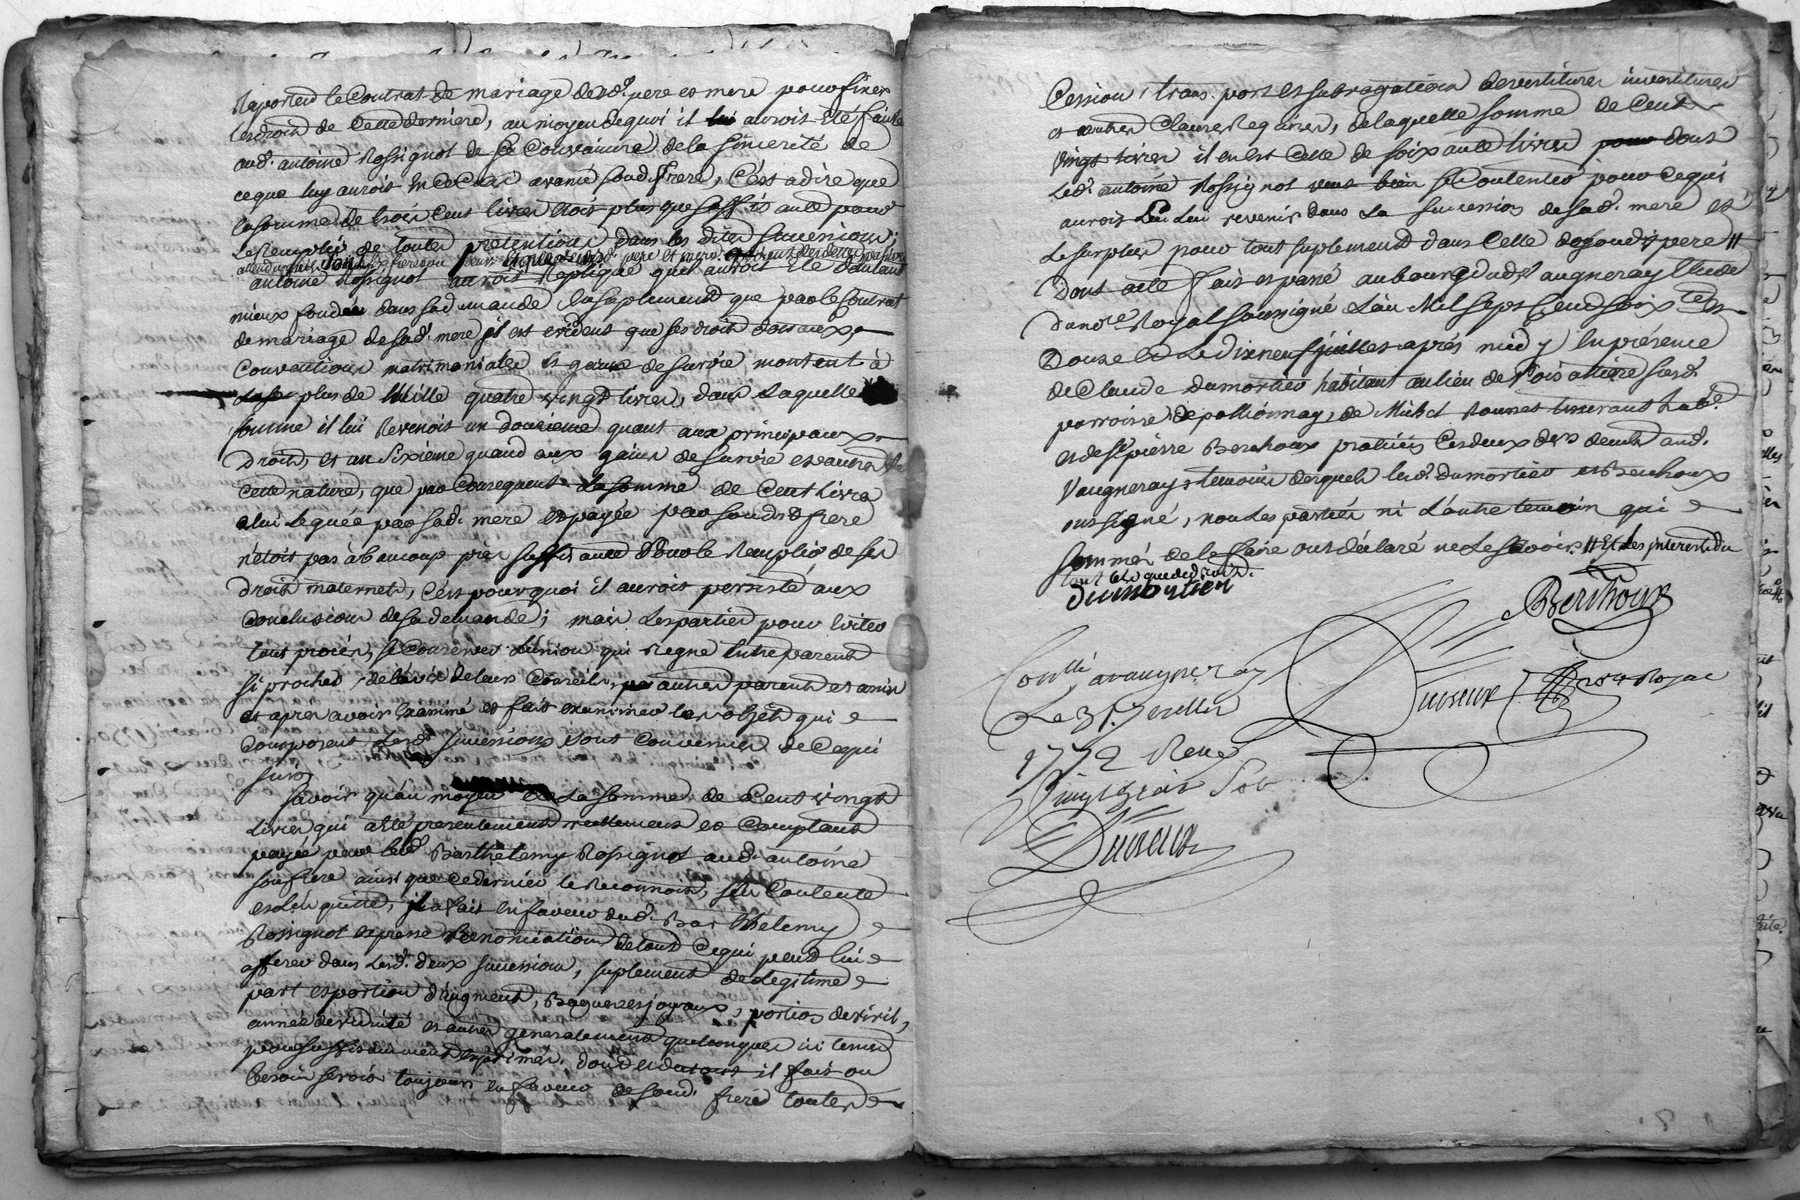 Raportoit le Contrat de mariage desd. pere et mere pour fixer
les droits de cette derniere, au moyen de quoi il auroit été facile
aud. antoine Rossignol de se Convaincre de la sincerité de
ce que luy auroit avancé soud. frere, C'est a dire que
la somme de trois Cent livres etoit plus que suffisante pour
le remplir de toutes pretentions dans les dites successions;
antoine Rossignol auroit Repliqué qu'il auroit été d'autant
mieux fondé dans sa demande en suplement que par le Contrat
de mariage de sad. mere il est evident que ses droits dotaux,
Conventions matrimoniales et gains de survie montent à
plus de Mille quatre vingt livres, dans laquelle
somme il lui Revenoit un douzieme quant aux principaux
Droits, et un Sixieme quand aux gains de survie et autres de
cette nature, que par Consequent la somme de Cent livres
a lui leguée par sad. mere et payée par soudit frere
n'etoit pas à beaucoup près suffisante pour le Remplir de ses
droits maternels, C'est pourquoi il auroit persisté aux
Conclusions de sa demande; mais les parties pour eviter
tous procès, se Conserver l'union qui Regne entre parents
si proches, de l'avis de leurs Conseils, autres parents et amis
et apres avoir Examiné et fait examiner les objets qui
Composent lesd. successions sont Convenues de Ce qui
suit
Savoir qu'au moyen de la somme de Cent vingt
Livres qui a été presentement reellement et Comptant
payée par led. Barthelemy Rossignol aud. antoine
son frere ainsi que ce dernier le Reconnoit, s'en Contente
et l'en quitte, il a fait en faveur dud. Barthelemy
Rossignol expresse Renonciation de tout Ce qui peut lui
afferer dans lesd. deux successions, suplement de Legitime
part et portion d'augment, Bagues et joyaux, portion de virile,
année de viduité et autres generalement quelconques ici tenus
pour suffisamment exprimés, dont et du tout il fait ou
besoin seroit toujours en faveur de soud. frere toutes
Cession, transport et subrogation devestitures investitures
et autres Clauses Requises, de laquelle somme de Cent
vingt livres il en est Celle de soixante livres dont
led. antoine Rossignol se Contente pour ce qui
auroit pu lui revenir dans la succession de sad. mere et
Le surplus pour tout suplement dans Celle de soud. pere //
Dont acte fait et passé au bourg dud. Vaugneray Etude
du nore. Royal soussigné L'an Mil sept Cent soixte. et
Douze et Le dixneuf juillet après midy En présence
de Claude Dumortier habitant au lieu de
parroisse de pollionnay, de Michel tisserant habt.
et de St. pierre Berthoux praticien Ces deux der. demt. aud.
Vaugneray, temoins desquels lesd. Dumortier et Berthoux
ont signé, non Les parties ni L'autre temoin qui
Sommés de le faire ont declaré ne le Savoir. // Et des interests du
tout tels que de droit.
Dumortier
Berthoux
Conllé. a vaugneray
Le 31. Juillet
1772 Reçu
Vingt six Sols
Duvieux nore Royal
Duvieux